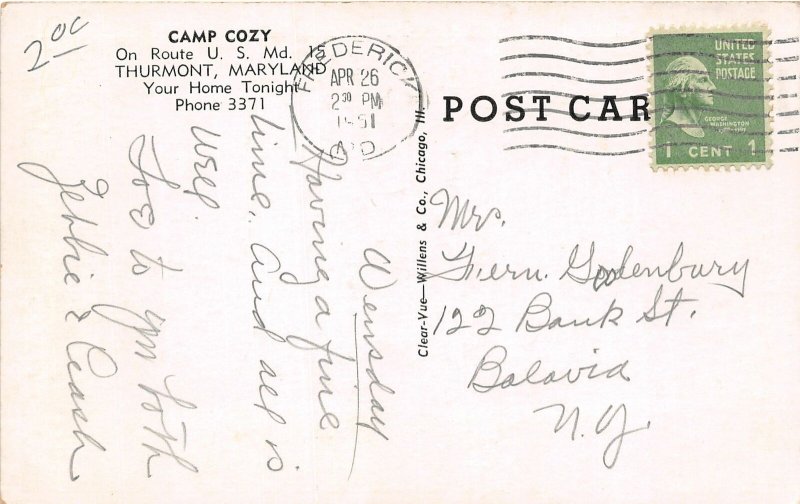 2 00
CAMP COZY
On Route U. S. Md. 15
THURMONT, MARYLAND
Your Home Tonight
Phone 3371
FREDERICK
APR 26
2 30 PM
1951
MD
POST CARD
UNITED
STATES
POSTAGE
GEORGE
WASHINGTON
1 CENT 1
Clear-Vue—Willens & Co., Chicago, Ill.
Wensday
Having a fine
time. And all is
well.
to you both
&
Mrs.
Fern
122 Bank St.
Batavia
N.Y.